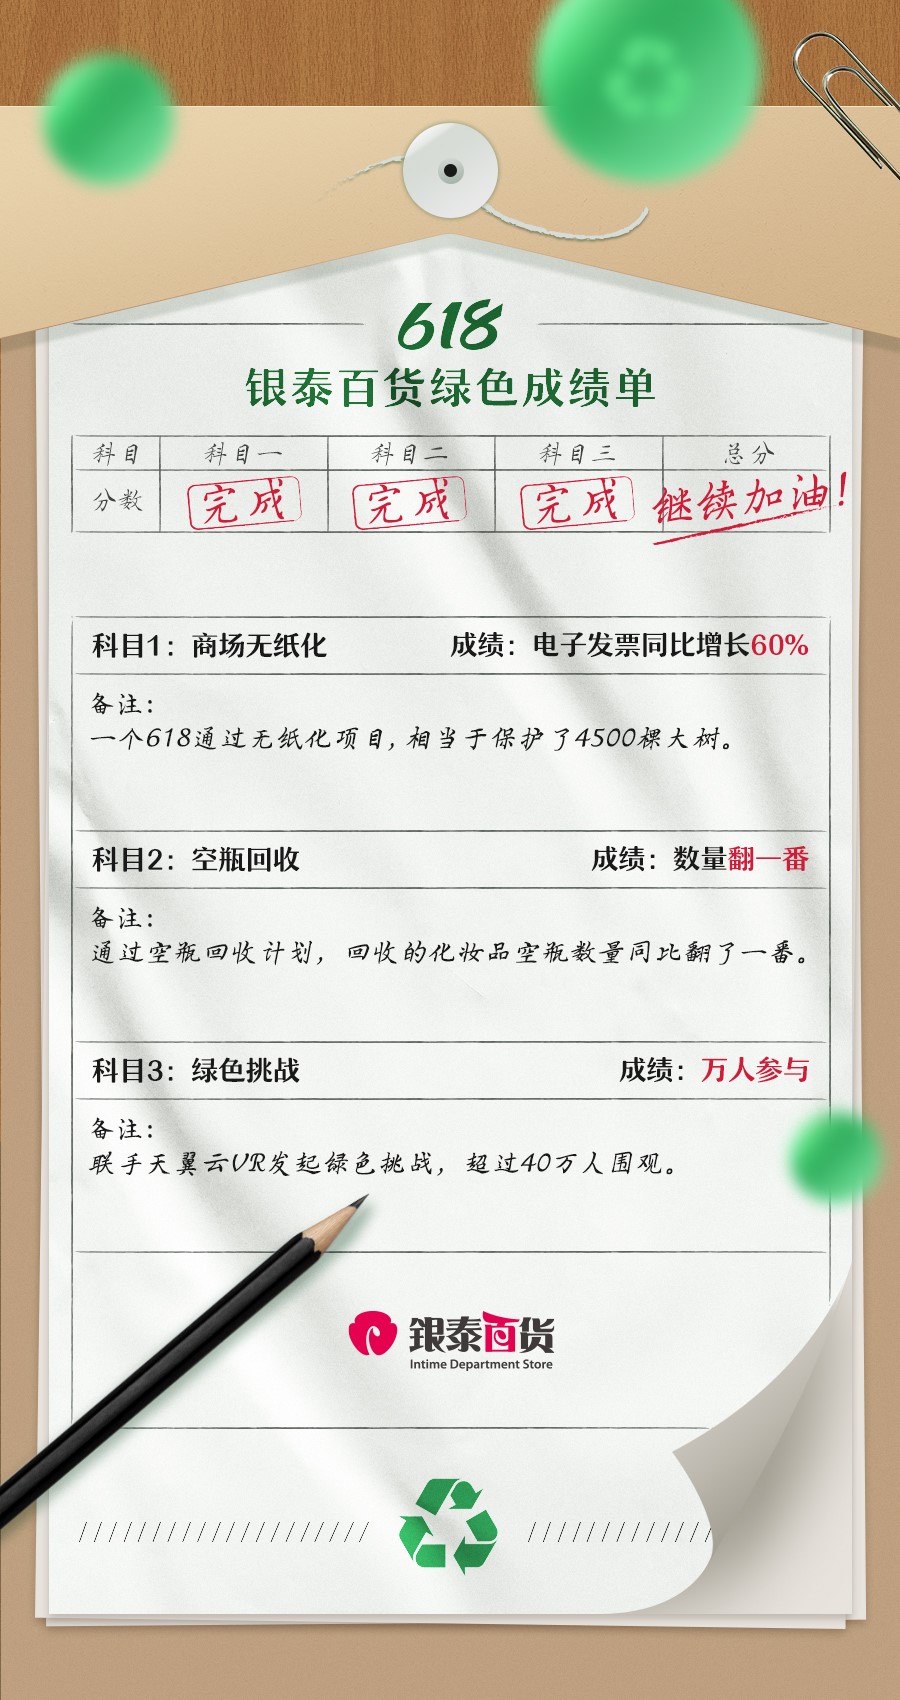 618
银泰百货绿色成绩单
科目 科目一 科目二 科目三 总分
分数 完成 完成 完成 继续加油!
科目1：商场无纸化 成绩：电子发票同比增长60%
备注：
一个618通过无纸化项目，相当于保护了4500棵大树。
科目2：空瓶回收 成绩：数量翻一番
备注：
通过空瓶回收计划，回收的化妆品空瓶数量同比翻了一番。
科目3：绿色挑战 成绩：万人参与
备注：
联手天翼云VR发起绿色挑战，超过40万人围观。
银泰百货
Intime Department Store